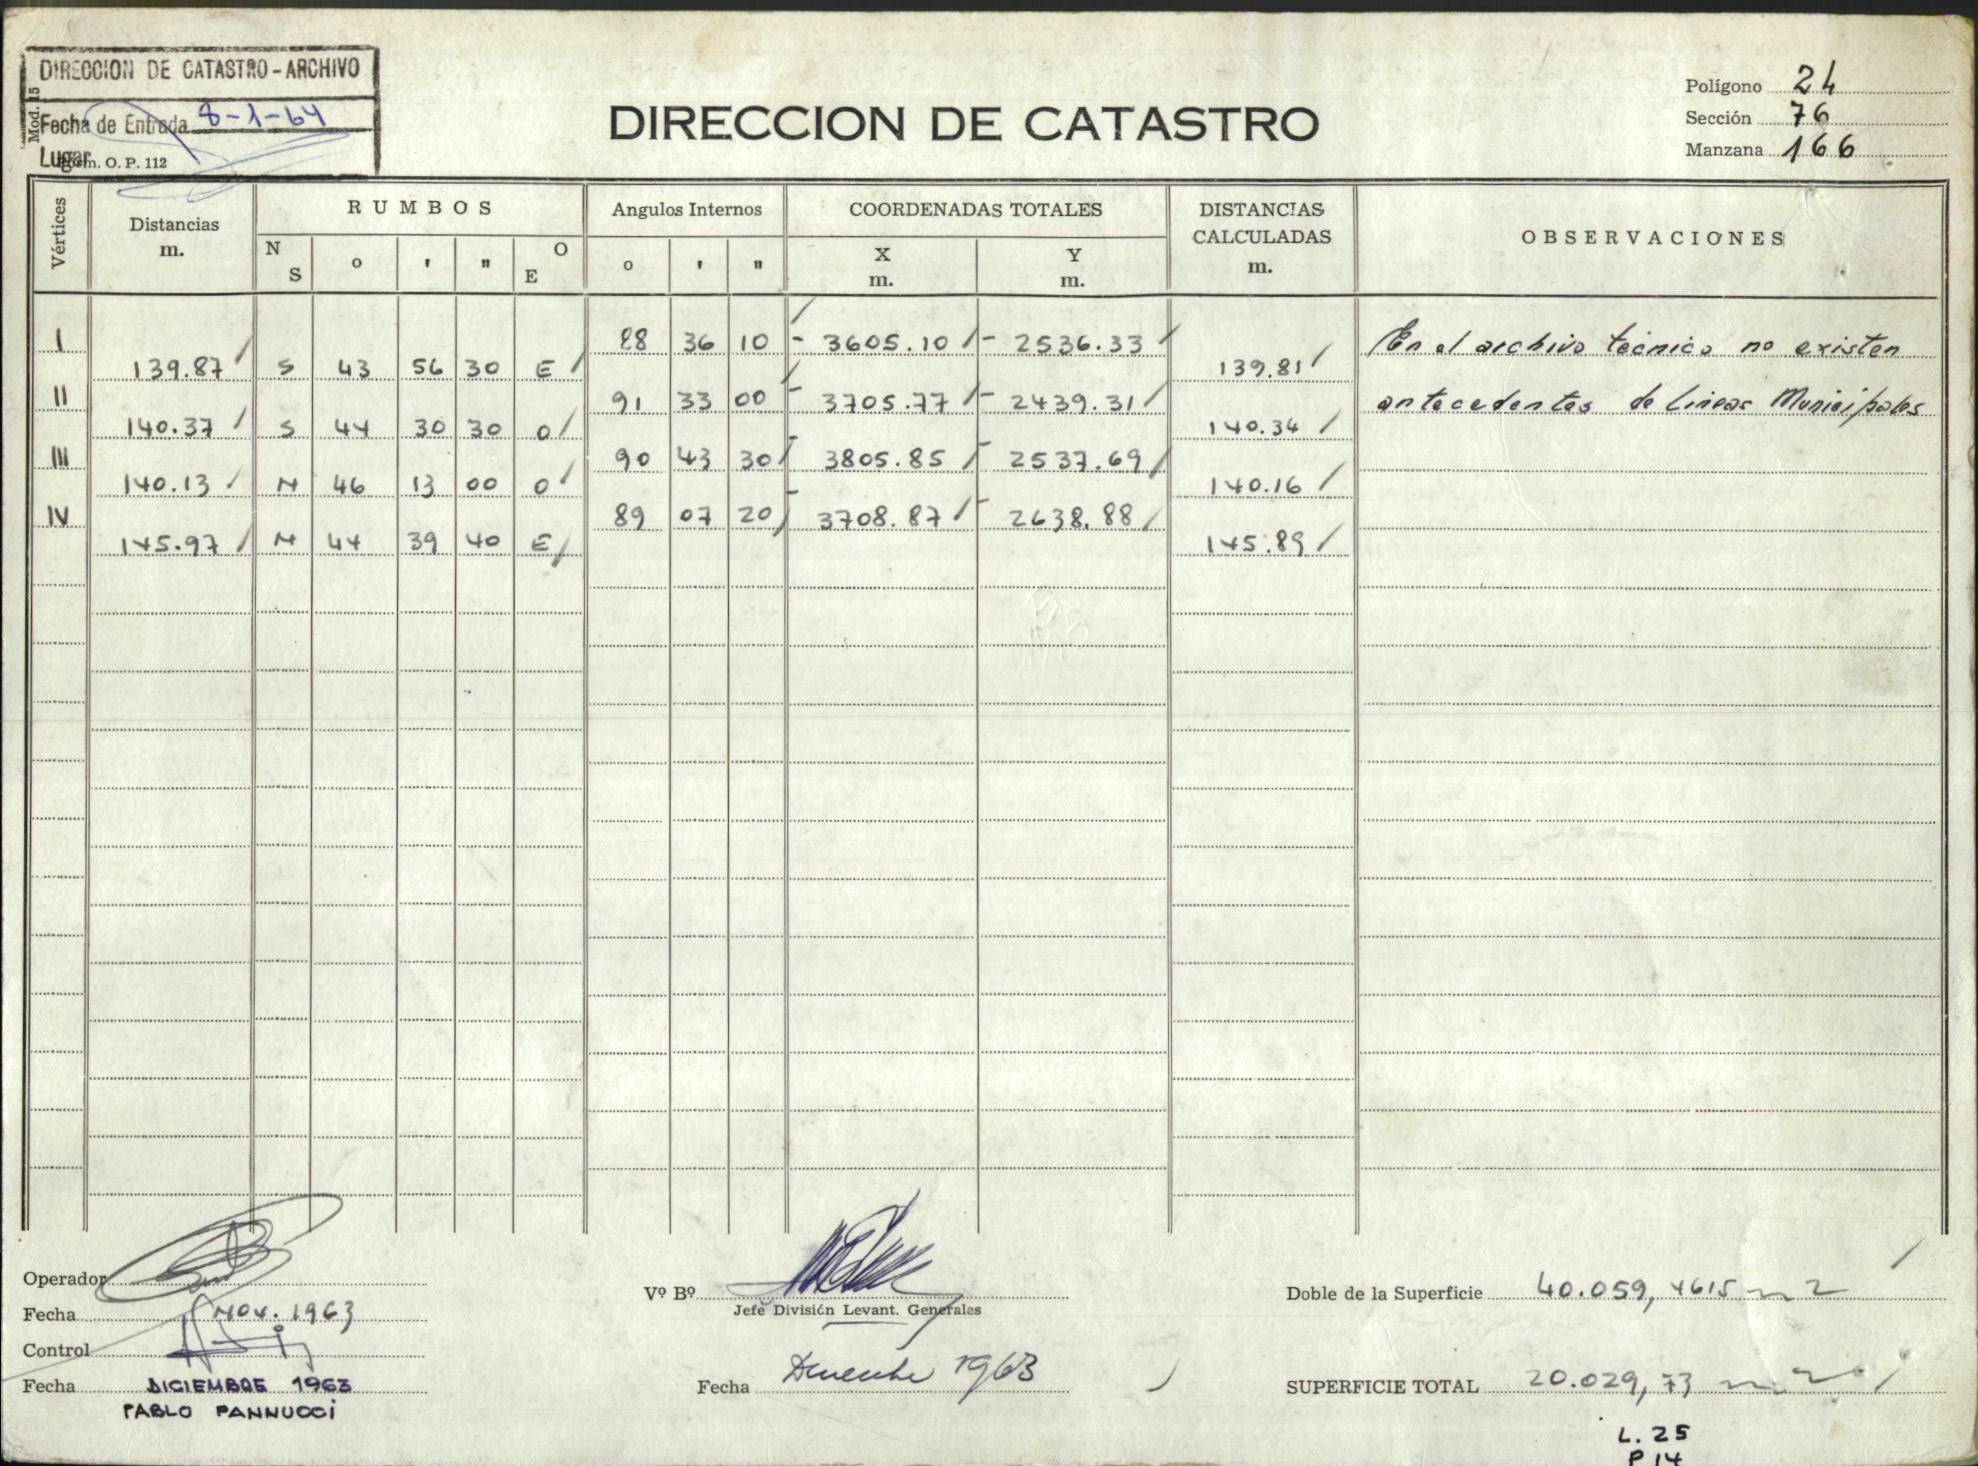 DIRECCION DE CATASTRO - ARCHIVO
Mod. 15
Fecha de Entrada 8-1-64
Lugar
Form. O. P. 112
DIRECCION DE CATASTRO
Polígono 24
Sección 76
Manzana 166
Vértices Distancias m. RUMBOS Angulos Internos COORDENADAS TOTALES DISTANCIAS CALCULADAS m. OBSERVACIONES
N S o ' " O E o ' " X m. Y m.
I 88 36 10 - 3605.10 - 2536.33 En el archivo técnico no existen
139.87 S 43 56 30 E 139.81
II 91 33 00 - 3705.77 - 2439.31 antecedentes de Lineas Municipales
140.37 S 44 30 30 O 140.34
III 90 43 30 - 3805.85 - 2537.69
140.13 N 46 13 00 O 140.16
IV 89 07 20 - 3708.87 - 2638.88
145.97 N 44 39 40 E 145.89
Operador
Fecha Nov. 1963
Control
Fecha DICIEMBRE 1963
PABLO PANNUCCI
Vº Bº
Jefe División Levant. Generales
Fecha Diciembre 1963
Doble de la Superficie 40.059,4615 m2
SUPERFICIE TOTAL 20.029,73 m2
L. 25
P 14